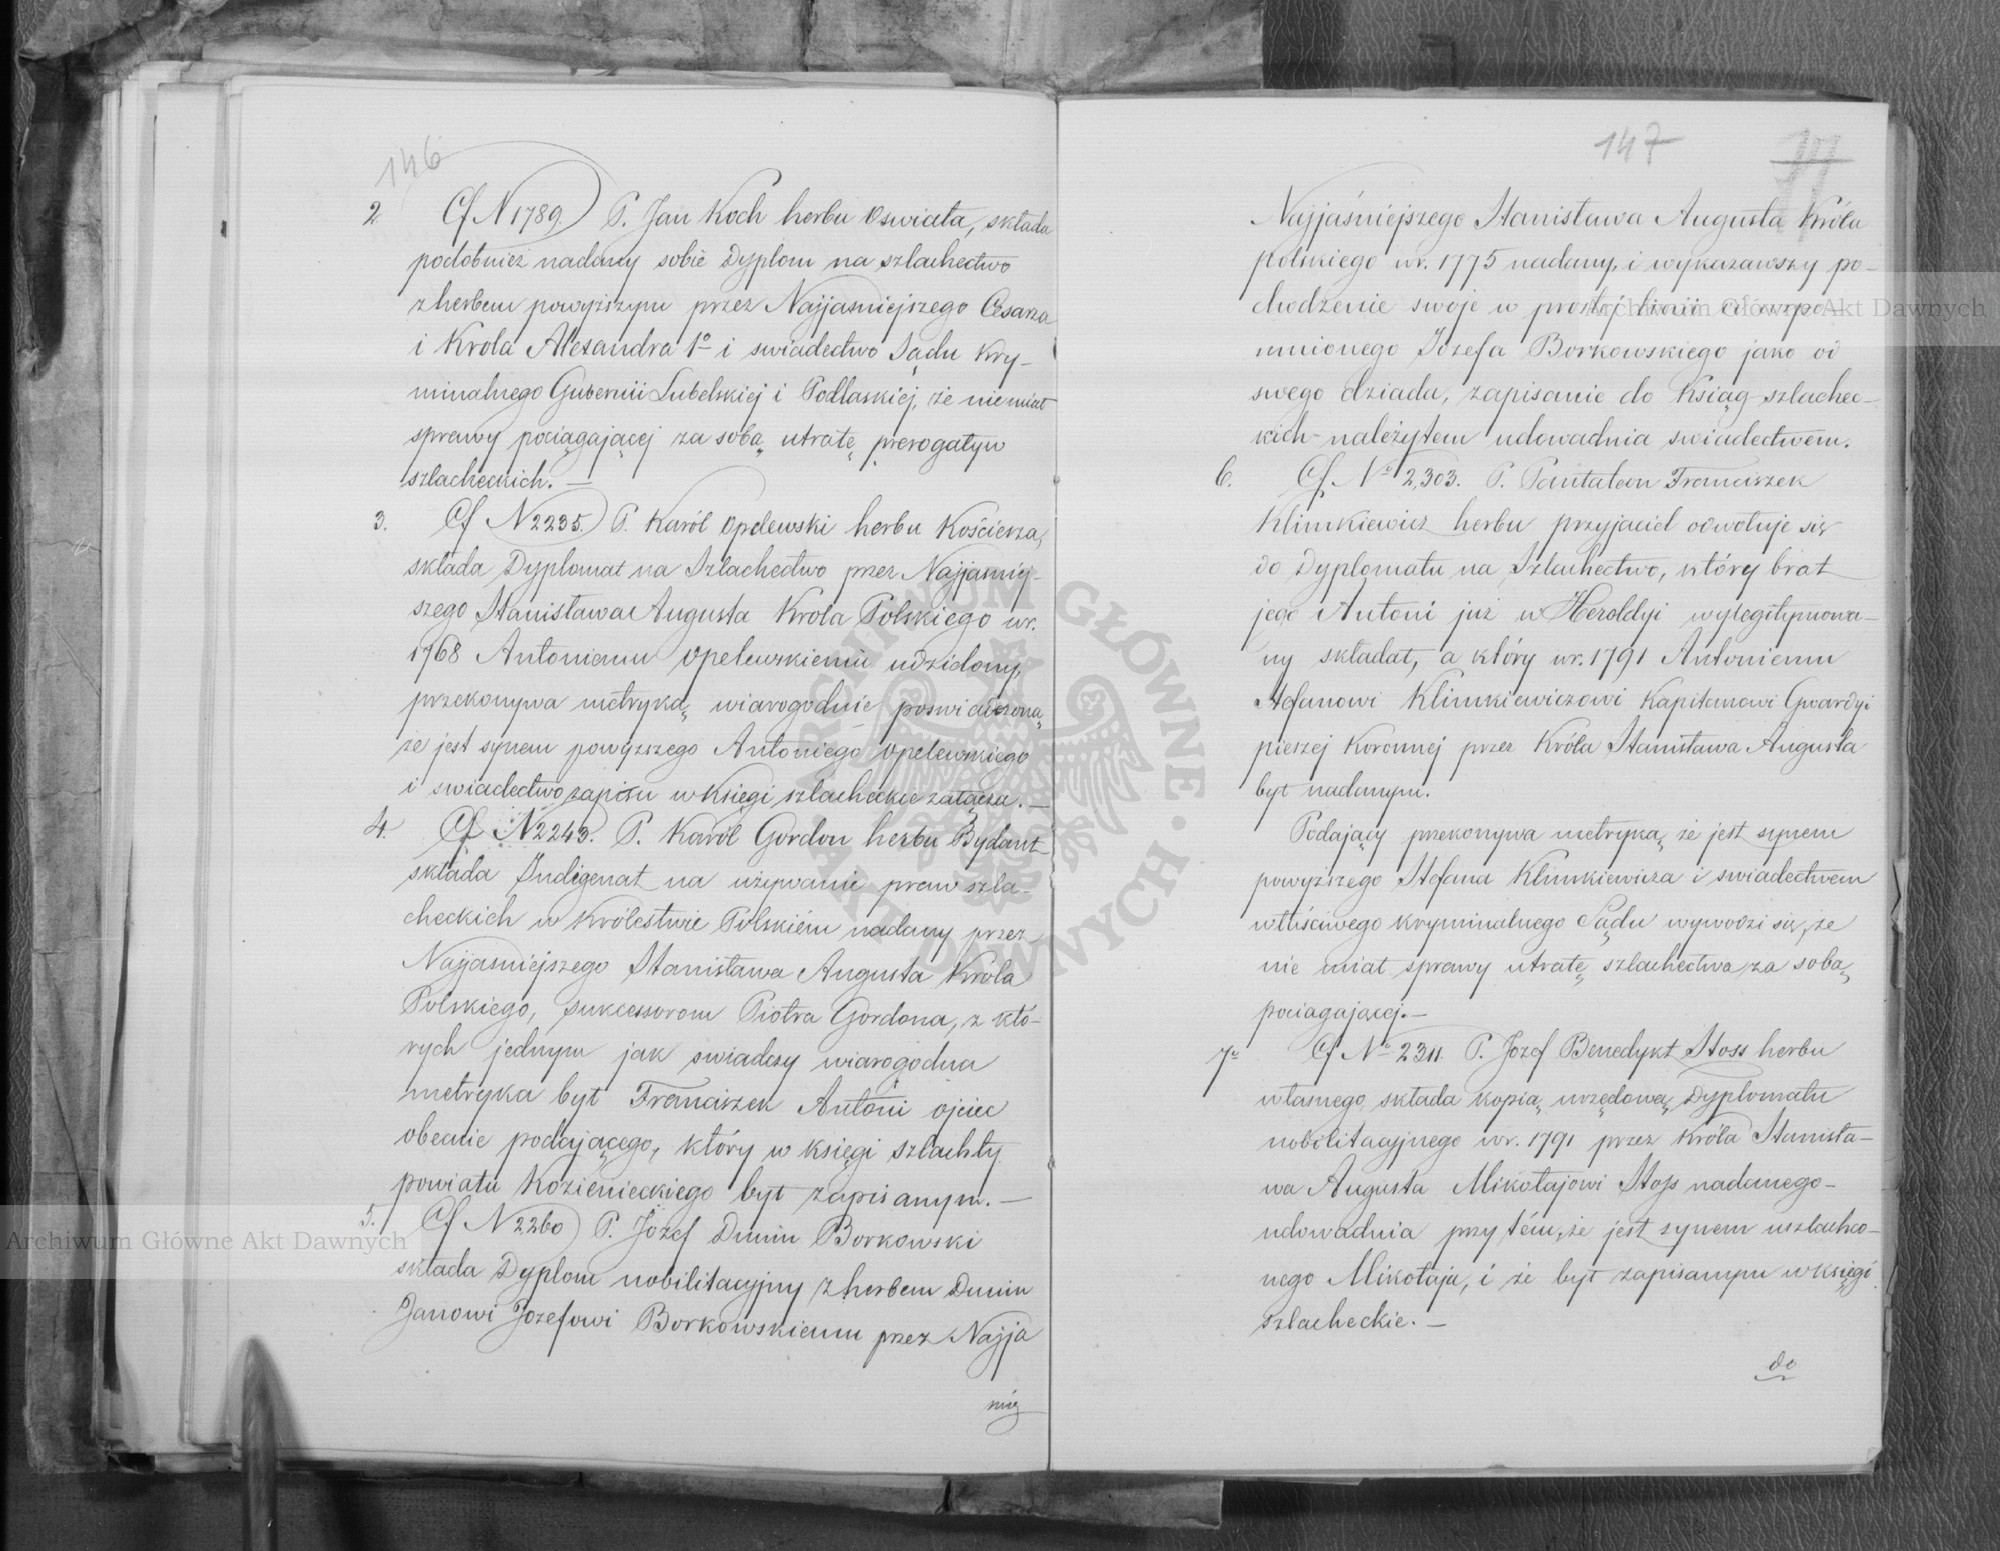 146
2 Cf N 1789.) P. Jan Koch herbu Oswiata, składa
podobnież nadany sobie Dyplom na szlachectwo
z herbem powyższym przez Najjasniejszego Cesarza
i Krola Alexandra 1º i swiadectwo Sądu Kry-
minalnego Gubernii Lubelskiej i Podlaskiej, że nie miał
sprawy pociągającej za sobą utratę prerogatyw
szlacheckich. —
3. Cf N 2235.) P. Karól Opelewski herbu Kościesza,
składa Dyplomat na Szlachectwo przez Najjasniej-
szego Stanisława Augusta Krola Polskiego w r.
1768 Antoniemu Opelewskiemu udzielony,
przekonywa metryką wiarogodnie poswiadczoną
że jest synem powyższego Antoniego Opelewskiego
i swiadectwo zapisu w Księgi szlacheckie załącza. —
4. Cf N 2243. P. Karól Gordon herbu Bydant
składa Indigenat na używanie praw szla-
checkich w Królestwie Polskiém nadany przez
Najjasniejszego Stanisława Augusta Króla
Polskiego, sukcessorom Piotra Gordona, z któ-
rych jednym jak swiadczy wiarogodna
metryka był Franciszek Antoni ojciec
obecnie podającego, który w księgi szlachty
powiatu Kozienieckiego był zapisanym. —
5. Cf N 2260) P. Józef Dunin Borkowski
składa Dyplom nobilitacyjny z herbem Dunin
Janowi Jozefowi Borkowskiemu przez Najja
śniej
147
Najjaśniejszego Stanisława Augusta Króla
polskiego w r. 1775 nadany, i wykazawszy po-
chodzenie swoje w prostej linii od wspo-
mnionego Józefa Borkowskiego jako od
swego dziada, zapisanie do Ksiąg szlachec-
kich należytem udowadnia swiadectwem.
6. Cf. Nº 2,303. P. Pantaleon Franciszek
Klimkiewicz herbu przyjaciel odwołuje się
do Dyplomatu na Szlachectwo, który brat
jego Antoni już w Heroldyi wylegitymowa-
ny składał, a który w r. 1791 Antoniemu
Stefanowi Klimkiewiczowi Kapitanowi Gwardyi
pieszej Koronnej przez Króla Stanisława Augusta
był nadanym.
Podający przekonywa metryką, że jest synem
powyższego Stefana Klimkiewicza i swiadectwem
właściwego kryminalnego Sądu wywodzi się, że
nie miał sprawy utratę szlachectwa za sobą
pociągającej. —
7º Cf Nº 2311. P. Jozef Benedykt Stoss herbu
własnego, składa kopią urzędową Dyplomatu
nobilitacyjnego w r. 1791 przez Króla Stanisła-
wa Augusta Mikołajowi Stoss nadanego-
udowadnia przytém, że jest synem uszlachco-
nego Mikołaja, i że był zapisanym w księgi
szlacheckie. —
do
Archiwum Główne Akt Dawnych
Archiwum Główne Akt Dawnych
ARCHIWUM GŁÓWNE · AKT DAWNYCH ·